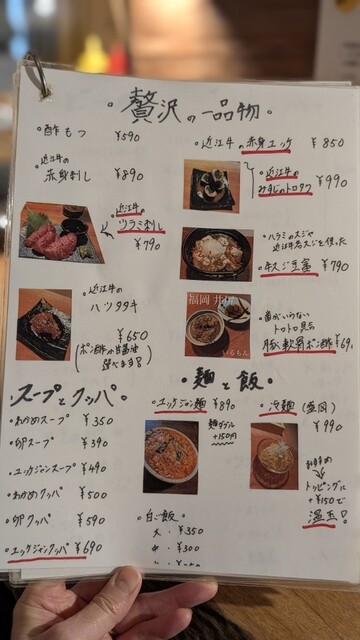 ・贅沢の一品物・
・酢もつ ¥590
・近江牛の
赤身刺し ¥890
・近江牛の
ツラミ刺し
¥790
・近江牛の
ハツタタキ
¥650
(ポン酢か甘醤油
選べます!)
・近江牛の赤身ユッケ ¥850
・近江牛の
みすじのトロタク
¥990
・ハラミのスジや
近江牛のスジを使った
牛スジ豆富 ¥790
福岡
いるもん
歯がいらない
トロトロ具合
豚軟骨ポン酢 ¥69
スープとクッパ
・わかめスープ ¥350
・卵スープ ¥390
・ユッケジャンスープ ¥490
・わかめクッパ ¥500
・卵クッパ ¥590
・ユッケジャンクッパ ¥690
・麺と飯・
・ユッケジャン麺 ¥890
麺ダブル
+150円
・冷麺(盛岡)
¥990
おすすめ
トッピングに
+¥150で
温玉!
・白ご飯・
大・¥350
中・¥300